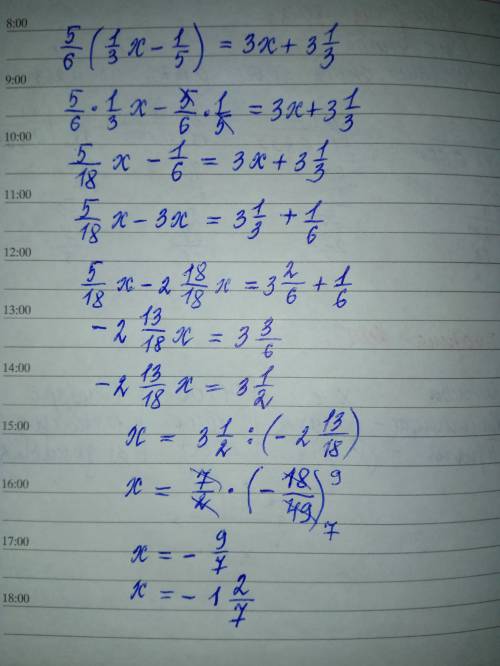 8:00
5/6 (1/3 x - 1/5) = 3x + 3 1/3
9:00
5/6 · 1/3 x - 5/6 · 1/5 = 3x + 3 1/3
10:00
5/18 x - 1/6 = 3x + 3 1/3
11:00
5/18 x - 3x = 3 1/3 + 1/6
12:00
5/18 x - 2 18/18 x = 3 2/6 + 1/6
13:00
- 2 13/18 x = 3 3/6
14:00
- 2 13/18 x = 3 1/2
15:00
x = 3 1/2 : (- 2 13/18)
16:00
x = 7/2 · (- 18/49) 9 7
17:00
x = - 9/7
x = - 1 2/7
18:00